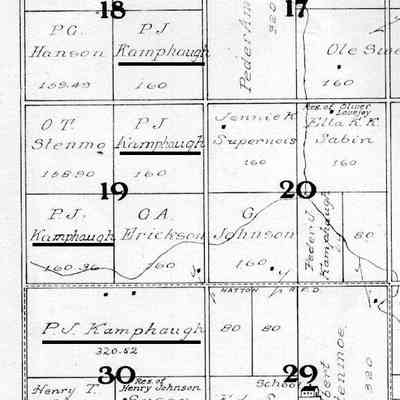 18
17
P.G.
Hanson
159.49
P J
Kamphaugh
160
320
Ole
160
O T.
Stenmo
158.90
P J
Kamphaugh
160
Jennie K
Supernois
160
Res. of Oliver
Lovejoy
Ella K. K.
Sabin
160
19
20
P.J.
Kamphaugh
160.96
O A.
Erickson
160
G.
Johnson
160
Peder J.
Kamphaugh
80
HATTON
R F D
P.J. Kamphaugh
320.52
80
80
30
29
Henry T.
Res. of
Henry Johnson
School
320